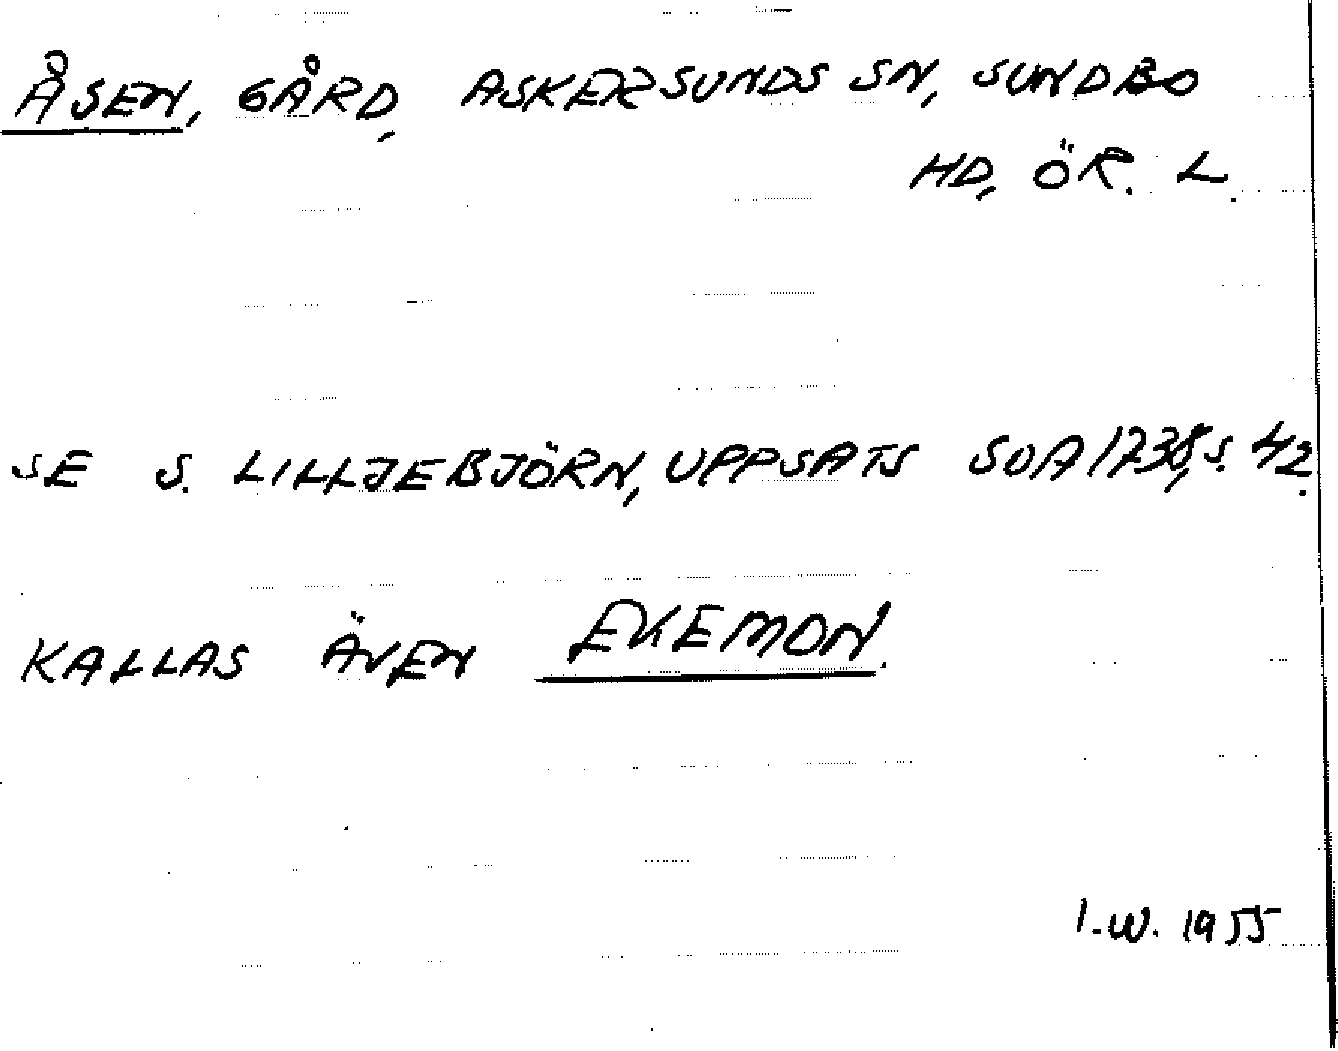 ÅSEN, GÅRD, ASKERSUNDS SN, SUNDBO
HD, ÖR. L.
SE S. LILLJEBJÖRN, UPPSATS SOA 1738, S. 42.
KALLAS ÄVEN EKEMON.
I.W. 1955